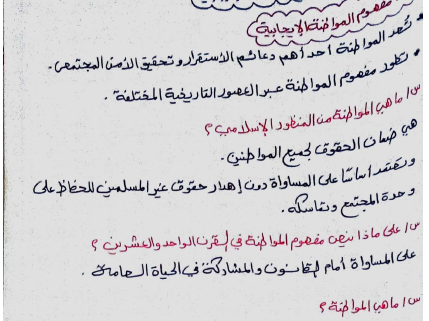 مفهوم المواطنة الإيجابية
• تُعد المواطنة أحد أهم دعائم الاستقرار وتحقيق الأمن المجتمعي.
• تطور مفهوم المواطنة عبر العصور التاريخية المختلفة.
س/ ما هي المواطنة من المنظور الإسلامي؟
هي ضمان الحقوق لجميع المواطنين.
وتعتمد أساسًا على المساواة دون إهدار حقوق غير المسلمين للحفاظ على
وحدة المجتمع وتماسكه.
س/ على ماذا ينص مفهوم المواطنة في القرن الواحد والعشرين؟
على المساواة أمام القانون والمشاركة في الحياة السياسية.
س/ ما هي المواطنة؟